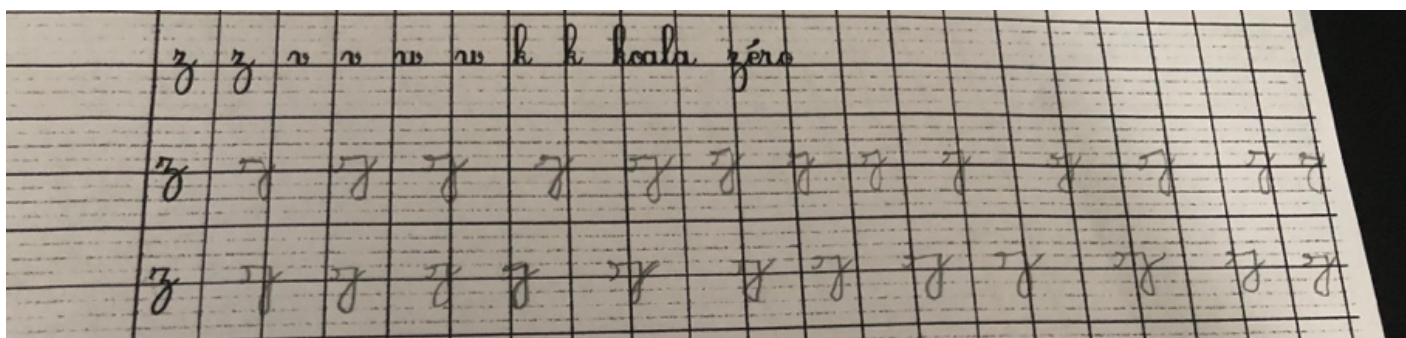 z z v v w w k k koala zéro
z z z z z z z z z z z z z z
z z z z z z z z z z z z z